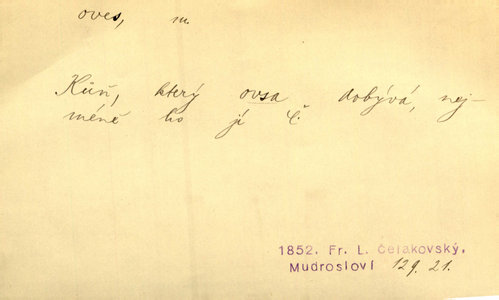 oves, m.
Kůň, který ovsa dobývá, nej-
méně ho jí Č.
1852. Fr. L. Čelakovský,
Mudrosloví 129. 21.